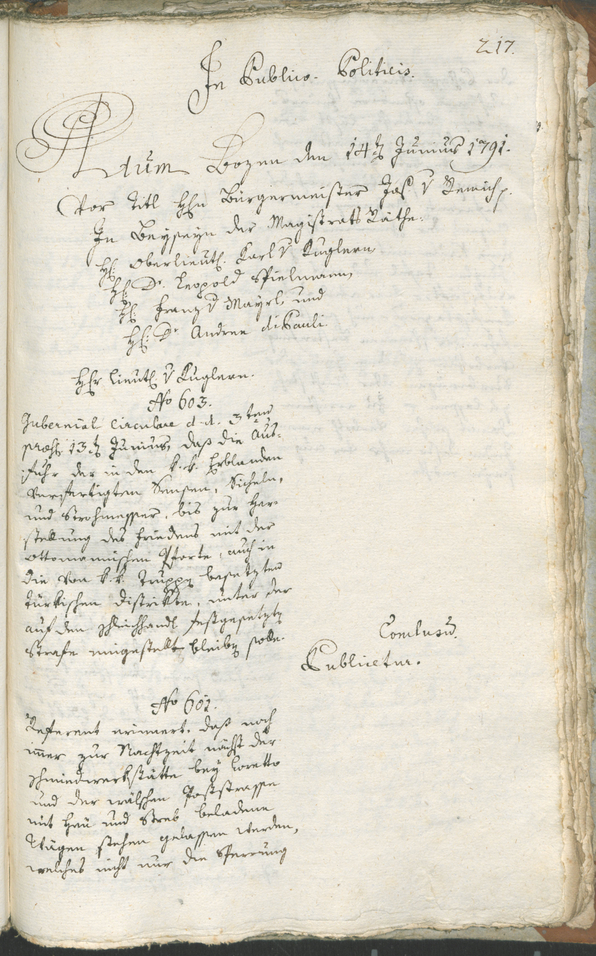 217.
In Publico-Politicis.
Actum Bozen den 14t Junius 1791.
Vor Titl Hrn Bürgermeister Jos. v Remich p.
In Beyseyn der Magistrats Räthe.
Hr. Oberlieut. Karl v Kuglern
Hr. Dr. Leopold Spielmann
Hr. Franz v Mayrl und
Hr. Dr. Andreä di Pauli.
Hr lieut. v Kuglern.
No 603.
Gubernial Circulare d. d. 3ten
præs. 13t Junius, daß die Aus-
fuhr der in den k. k. Erblanden
verfertigten Sensen, Sicheln,
und Strohmesser, bis zur Her-
stellung des Friedens mit der
ottomanischen Pforte, auch in
die von k. k. Trupp besetzten
türkischen Distrikte, unter der
auf den Schleichhandl festgesetzte
Strafe eingestellt bleiben solle.
Conclusum.
Publicetur.
No 601.
Referent erinnert, daß noch
immer zur Nachtzeit nächst der
Schmiedwerkstätte bey Loretto
und der wälschen Poststrasse
mit Heu und Streb beladene
Wägen stehen gelassen werden,
welches nicht nur die Sperrung